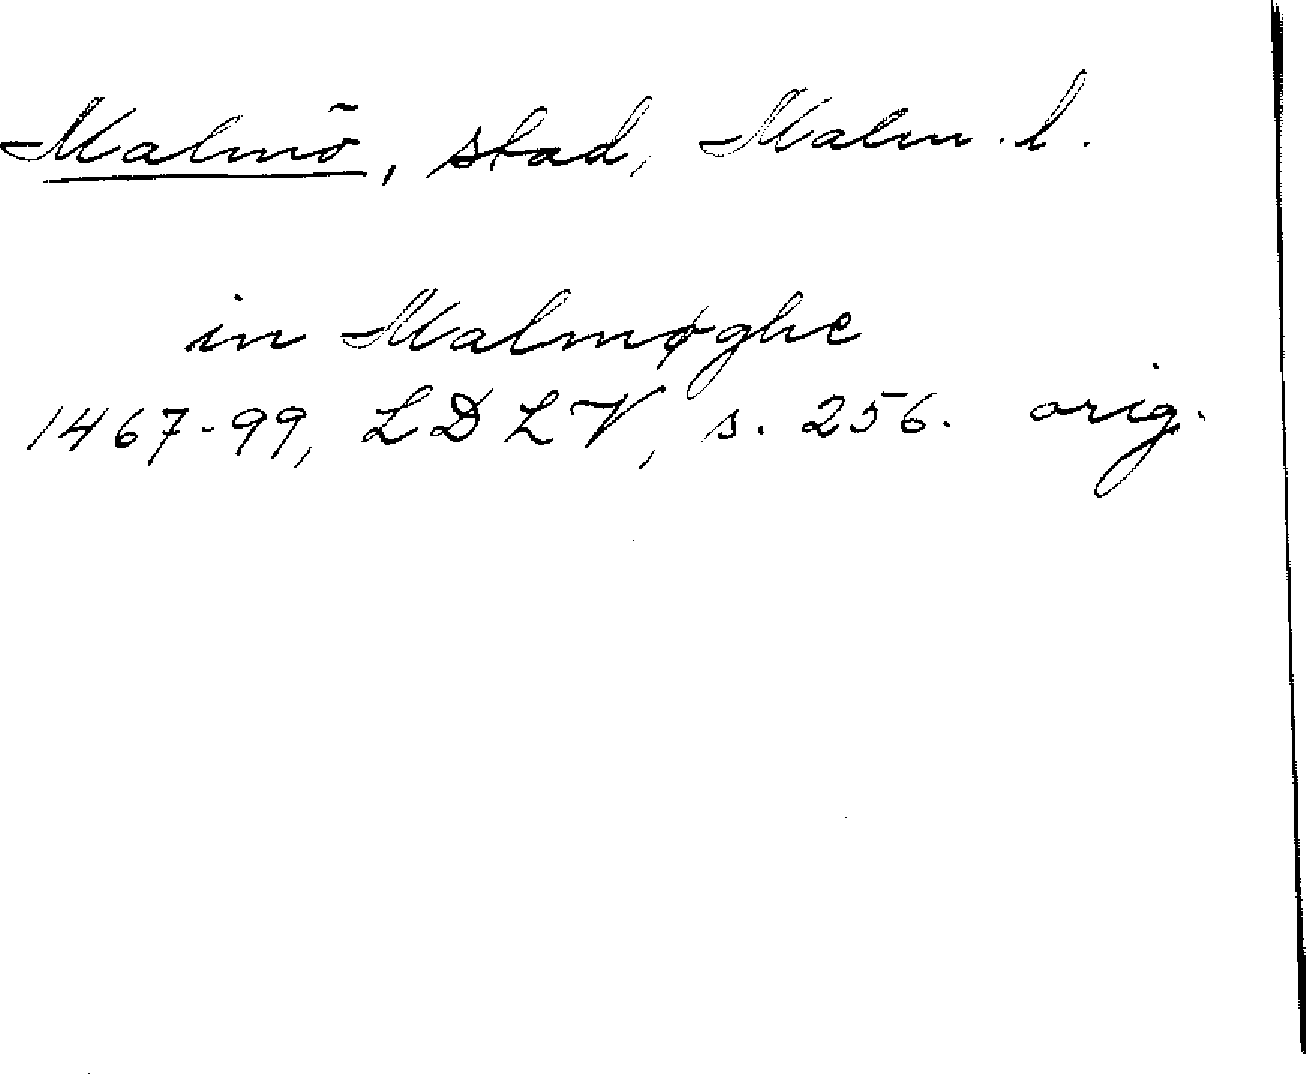 Malmö, stad, Malm. l.
in Malmøghe
1467-99, LDLV, s. 256. orig.